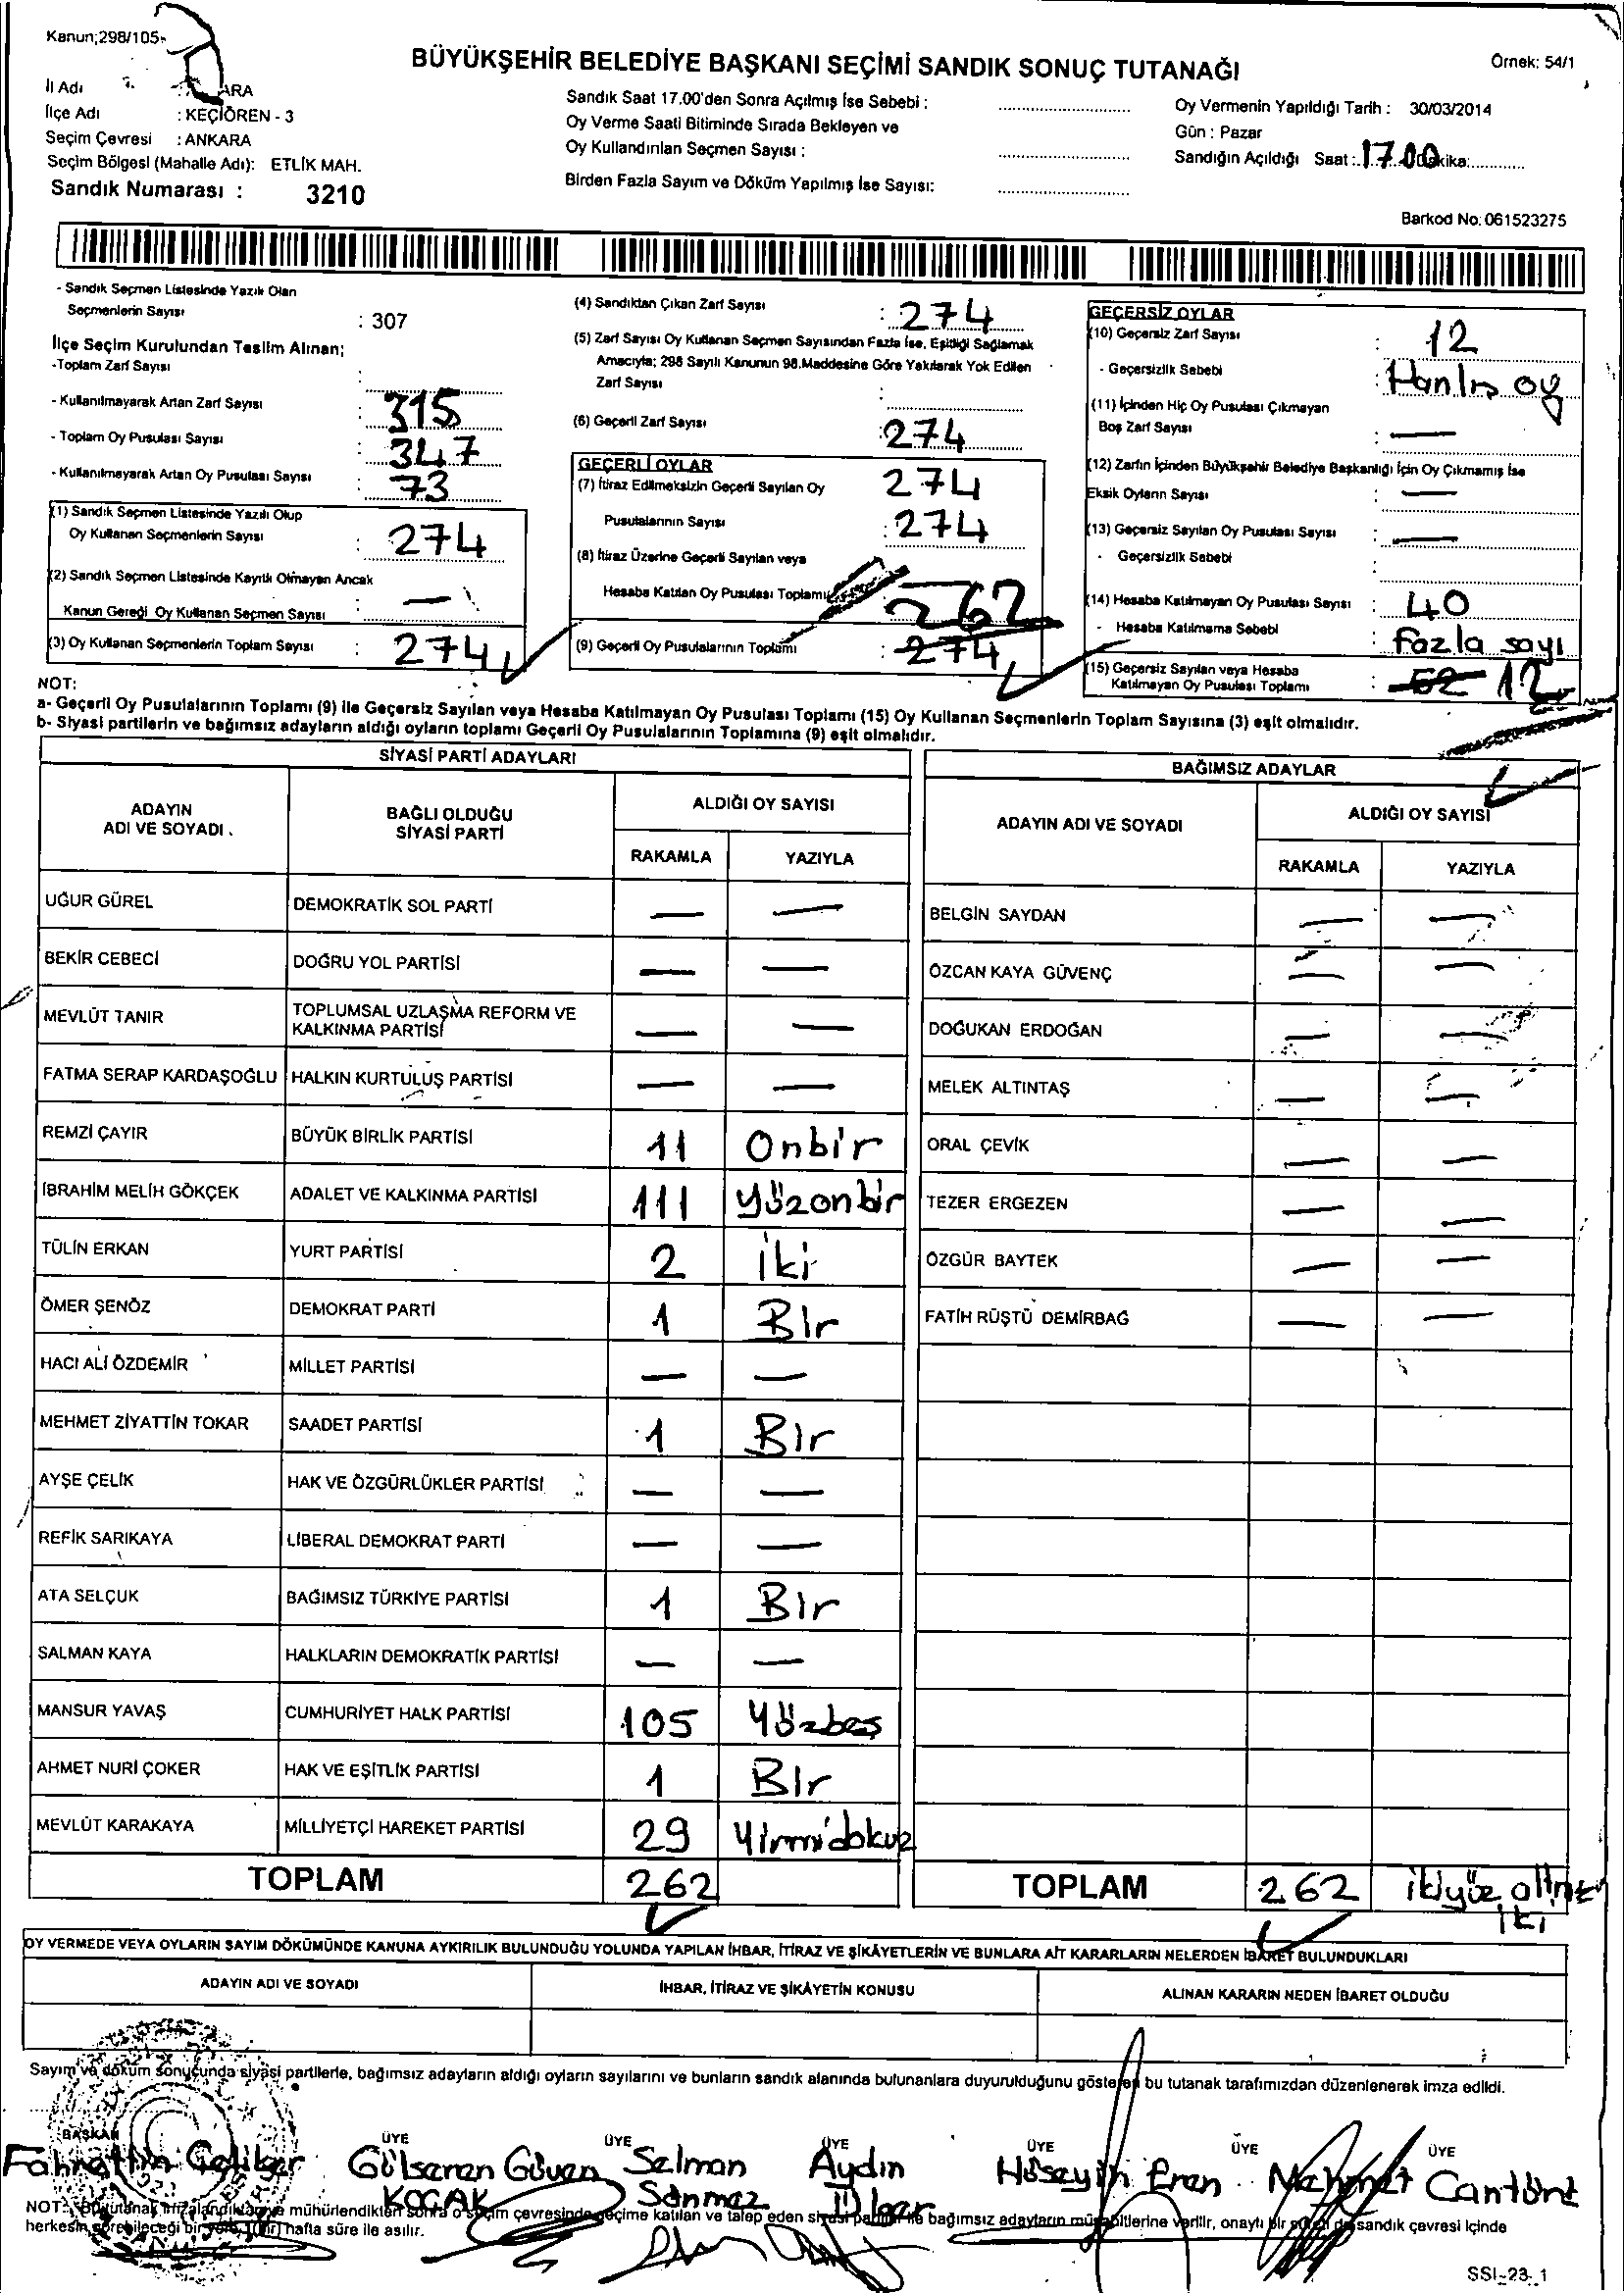 Kanun;298/105-
BÜYÜKŞEHİR BELEDİYE BAŞKANI SEÇİMİ SANDIK SONUÇ TUTANAĞI
Örnek: 54/1
İl Adı : ARA
İlçe Adı : KEÇİÖREN - 3
Seçim Çevresi : ANKARA
Seçim Bölgesi (Mahalle Adı): ETLİK MAH.
Sandık Numarası : 3210
Sandık Saat 17.00'den Sonra Açılmış İse Sebebi :
Oy Verme Saati Bitiminde Sırada Bekleyen ve
Oy Kullandırılan Seçmen Sayısı :
Birden Fazla Sayım ve Döküm Yapılmış İse Sayısı:
Oy Vermenin Yapıldığı Tarih : 30/03/2014
Gün : Pazar
Sandığın Açıldığı Saat : 17.00 Dakika:
Barkod No: 061523275
- Sandık Seçmen Listesinde Yazılı Olan
Seçmenlerin Sayısı : 307
İlçe Seçim Kurulundan Teslim Alınan;
-Toplam Zarf Sayısı :
- Kullanılmayarak Artan Zarf Sayısı : 315
- Toplam Oy Pusulası Sayısı : 347
- Kullanılmayarak Artan Oy Pusulası Sayısı : 73
(1) Sandık Seçmen Listesinde Yazılı Olup
Oy Kullanan Seçmenlerin Sayısı : 274
(2) Sandık Seçmen Listesinde Kayıtlı Olmayan Ancak
Kanun Gereği Oy Kullanan Seçmen Sayısı : —
(3) Oy Kullanan Seçmenlerin Toplam Sayısı : 274
(4) Sandıktan Çıkan Zarf Sayısı : 274
(5) Zarf Sayısı Oy Kullanan Seçmen Sayısından Fazla İse, Eşitliği Sağlamak
Amacıyla; 298 Sayılı Kanunun 98.Maddesine Göre Yakılarak Yok Edilen
Zarf Sayısı :
(6) Geçerli Zarf Sayısı : 274
GEÇERLİ OYLAR
(7) İtiraz Edilmeksizin Geçerli Sayılan Oy 274
Pusulalarının Sayısı : 274
(8) İtiraz Üzerine Geçerli Sayılan veya
Hesaba Katılan Oy Pusulası Toplamı 262
(9) Geçerli Oy Pusulalarının Toplamı : 274
GEÇERSİZ OYLAR
(10) Geçersiz Zarf Sayısı : 12
- Geçersizlik Sebebi : oy
(11) İçinden Hiç Oy Pusulası Çıkmayan
Boş Zarf Sayısı : —
(12) Zarfın İçinden Büyükşehir Belediye Başkanlığı İçin Oy Çıkmamış İse
Eksik Oyların Sayısı : —
(13) Geçersiz Sayılan Oy Pusulası Sayısı : —
- Geçersizlik Sebebi
(14) Hesaba Katılmayan Oy Pusulası Sayısı : 40
- Hesaba Katılmama Sebebi : fazla sayı
(15) Geçersiz Sayılan veya Hesaba
Katılmayan Oy Pusulası Toplamı : 52 12
NOT:
a- Geçerli Oy Pusulalarının Toplamı (9) ile Geçersiz Sayılan veya Hesaba Katılmayan Oy Pusulası Toplamı (15) Oy Kullanan Seçmenlerin Toplam Sayısına (3) eşit olmalıdır.
b- Siyasi partilerin ve bağımsız adayların aldığı oyların toplamı Geçerli Oy Pusulalarının Toplamına (9) eşit olmalıdır.
SİYASİ PARTİ ADAYLARI
ADAYIN ADI VE SOYADI BAĞLI OLDUĞU SİYASİ PARTİ ALDIĞI OY SAYISI
RAKAMLA YAZIYLA
UĞUR GÜREL DEMOKRATİK SOL PARTİ — —
BEKİR CEBECİ DOĞRU YOL PARTİSİ — —
MEVLÜT TANIR TOPLUMSAL UZLAŞMA REFORM VE KALKINMA PARTİSİ — —
FATMA SERAP KARDAŞOĞLU HALKIN KURTULUŞ PARTİSİ — —
REMZİ ÇAYIR BÜYÜK BİRLİK PARTİSİ 11 Onbir
İBRAHİM MELİH GÖKÇEK ADALET VE KALKINMA PARTİSİ 111 Yüzonbir
TÜLİN ERKAN YURT PARTİSİ 2 İki
ÖMER ŞENÖZ DEMOKRAT PARTİ 1 Bır
HACI ALİ ÖZDEMİR MİLLET PARTİSİ — —
MEHMET ZİYATTİN TOKAR SAADET PARTİSİ 1 Bır
AYŞE ÇELİK HAK VE ÖZGÜRLÜKLER PARTİSİ — —
REFİK SARIKAYA LİBERAL DEMOKRAT PARTİ — —
ATA SELÇUK BAĞIMSIZ TÜRKİYE PARTİSİ 1 Bır
SALMAN KAYA HALKLARIN DEMOKRATİK PARTİSİ — —
MANSUR YAVAŞ CUMHURİYET HALK PARTİSİ 105 Yüzbeş
AHMET NURİ ÇOKER HAK VE EŞİTLİK PARTİSİ 1 Bır
MEVLÜT KARAKAYA MİLLİYETÇİ HAREKET PARTİSİ 29 Yirmidokuz
TOPLAM 262
BAĞIMSIZ ADAYLAR
ADAYIN ADI VE SOYADI ALDIĞI OY SAYISI
RAKAMLA YAZIYLA
BELGİN SAYDAN — —
ÖZCAN KAYA GÜVENÇ — —
DOĞUKAN ERDOĞAN — —
MELEK ALTINTAŞ — —
ORAL ÇEVİK — —
TEZER ERGEZEN — —
ÖZGÜR BAYTEK — —
FATİH RÜŞTÜ DEMİRBAĞ — —
TOPLAM 262 ikiyüz altmış
iki
OY VERMEDE VEYA OYLARIN SAYIM DÖKÜMÜNDE KANUNA AYKIRILIK BULUNDUĞU YOLUNDA YAPILAN İHBAR, İTİRAZ VE ŞİKÂYETLERİN VE BUNLARA AİT KARARLARIN NELERDEN İBARET BULUNDUKLARI
ADAYIN ADI VE SOYADI İHBAR, İTİRAZ VE ŞİKÂYETİN KONUSU ALINAN KARARIN NEDEN İBARET OLDUĞU
Sayım ve döküm sonucunda siyasi partilerle, bağımsız adayların aldığı oyların sayılarını ve bunların sandık alanında bulunanlara duyurulduğunu gösteren bu tutanak tarafımızdan düzenlenerek imza edildi.
BAŞKAN ÜYE ÜYE ÜYE ÜYE ÜYE ÜYE
Fahrettin Geliger Gülseren Güven Selman Aydın Hüseyin Eren Mehmet Cantürk
KOÇAK Sönmez Ülger
NOT: Bu tutanak imzalandıktan ve mühürlendikten sonra o seçim çevresinde seçime katılan ve talep eden siyasi partiler ile bağımsız adayların müşahitlerine verilir, onaylı bir sureti de sandık çevresi içinde
herkesin görebileceği bir yere, 1(bir) hafta süre ile asılır.
SSİ-23-1